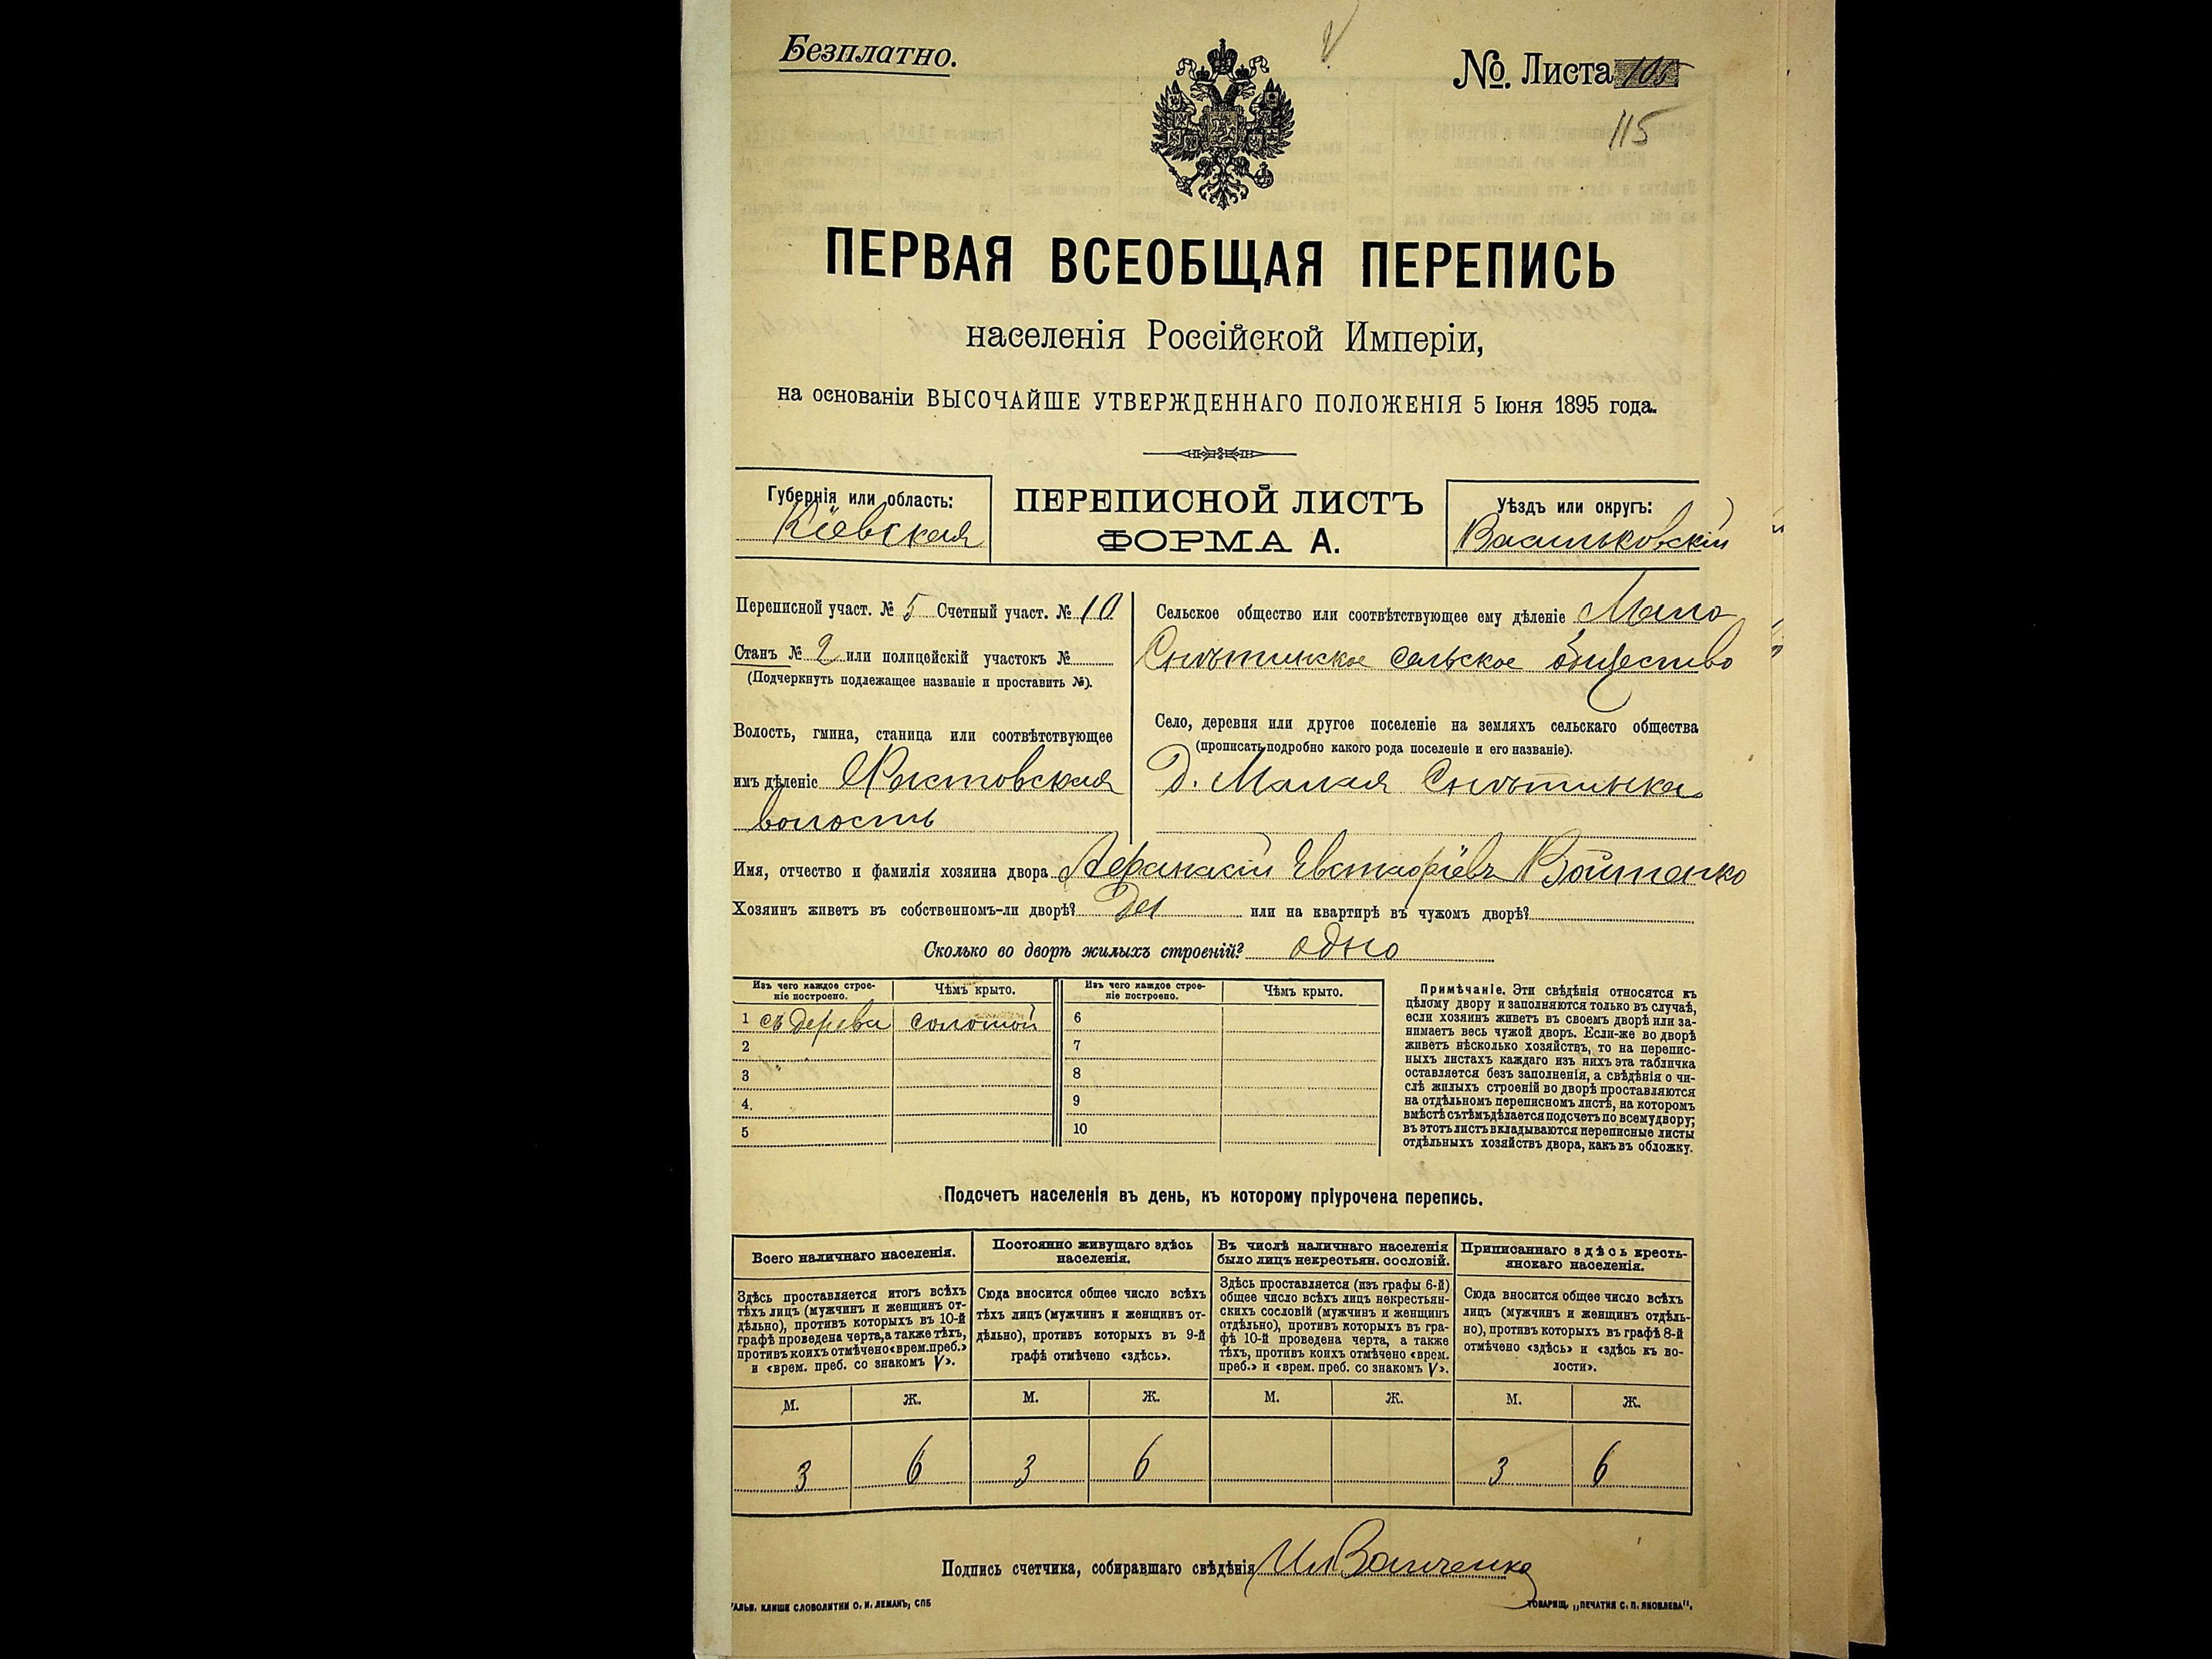 Безплатно.
№ Листа 105
115
ПЕРВАЯ ВСЕОБЩАЯ ПЕРЕПИСЬ
населенія Россійской Имперіи,
на основаніи ВЫСОЧАЙШЕ УТВЕРЖДЕННАГО ПОЛОЖЕНІЯ 5 Іюня 1895 года.
Губернія или область:
Кіевская
ПЕРЕПИСНОЙ ЛИСТЪ
ФОРМА А.
Уѣздъ или округъ:
Васильковскій
Переписной участ. № 5 Счетный участ. № 10
Станъ № 2 или полицейскій участокъ №
(Подчеркнуть подлежащее названіе и проставить №).
Волость, гмина, станица или соотвѣтствующее
имъ дѣленіе
волость
Сельское общество или соотвѣтствующее ему дѣленіе Мало
Снѣтинское сельское общество
Село, деревня или другое поселеніе на земляхъ сельскаго общества
(прописать подробно какого рода поселеніе и его названіе).
Д. Малая Снѣтинка
Имя, отчество и фамилія хозяина двора Афанасій Евстафіевъ Войтенко
Хозяинъ живетъ въ собственномъ-ли дворѣ? Да или на квартирѣ въ чужомъ дворѣ?
Сколько во дворѣ жилыхъ строеній? одно
Изъ чего каждое строе-
ніе построено.
Чѣмъ крыто.
1 съ дерева соломой
2
3
4.
5
Изъ чего каждое строе-
ніе построено.
Чѣмъ крыто.
6
7
8
9
10
Примѣчаніе. Эти свѣдѣнія относятся къ
цѣлому двору и заполняются только въ случаѣ,
если хозяинъ живетъ въ своемъ дворѣ или за-
нимаетъ весь чужой дворъ. Если-же во дворѣ
живетъ нѣсколько хозяйствъ, то на перепис-
ныхъ листахъ каждаго изъ нихъ эта табличка
оставляется безъ заполненія, а свѣдѣнія о чи-
слѣ жилыхъ строеній во дворѣ проставляются
на отдѣльномъ переписномъ листѣ, на которомъ
вмѣстѣ съ тѣмъ дѣлается подсчетъ по всему двору;
въ этотъ листъ вкладываются переписные листы
отдѣльныхъ хозяйствъ двора, какъ въ обложку.
Подсчетъ населенія въ день, къ которому пріурочена перепись.
Всего наличнаго населенія.
Здѣсь проставляется итогъ всѣхъ
тѣхъ лицъ (мужчинъ и женщинъ от-
дѣльно), противъ которыхъ въ 10-й
графѣ проведена черта, а также тѣхъ,
противъ коихъ отмѣчено «врем. преб.»
и «врем. преб. со знакомъ V».
М. Ж.
3 6
Постоянно живущаго здѣсь
населенія.
Сюда вносится общее число всѣхъ
тѣхъ лицъ (мужчинъ и женщинъ от-
дѣльно), противъ которыхъ въ 9-й
графѣ отмѣчено «здѣсь».
М. Ж.
3 6
Въ числѣ наличнаго населенія
было лицъ некрестьян. сословій.
Здѣсь проставляется (изъ графы 6-й)
общее число всѣхъ лицъ некрестьян-
скихъ сословій (мужчинъ и женщинъ
отдѣльно), противъ которыхъ въ гра-
фѣ 10-й проведена черта, а также
тѣхъ, противъ коихъ отмѣчено «врем.
преб.» и «врем. преб. со знакомъ V».
М. Ж.
Приписаннаго здѣсь кресть-
янскаго населенія.
Сюда вносится общее число всѣхъ
лицъ (мужчинъ и женщинъ отдѣль-
но), противъ которыхъ въ графѣ 8-й
отмѣчено «здѣсь» и «здѣсь къ во-
лости».
М. Ж.
3 6
Подпись счетчика, собиравшаго свѣдѣнія
КЛИШЕ СЛОВОЛИТНИ О. И. ЛЕМАНЪ, СПБ
ТОВАРИЩ. „ПЕЧАТНЯ С. П. ЯКОВЛЕВА".